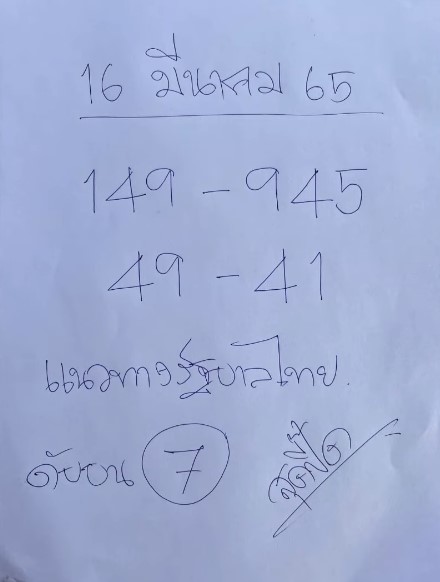 16 มีนาคม 65
149 - 945
49 - 41
แนวทางรัฐบาลไทย.
ดับบน 7